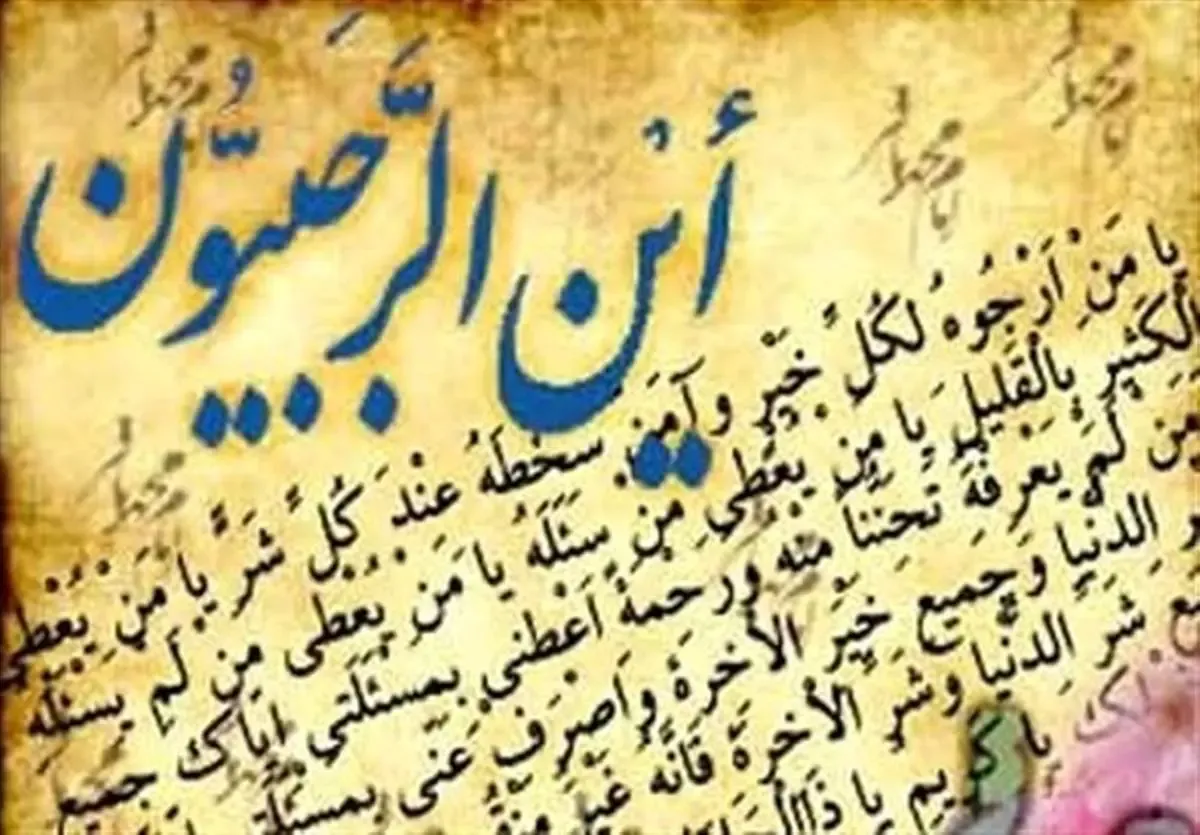 أَيْنَ الرَّجَبِيُّونَ
يا مَنْ اَرْجُوهُ لِكُلِّ خَيْرٍ وَ آمَنُ سَخَطَهُ عِنْدَ كُلِّ شَرٍّ يا مَنْ يُعْطِي
الْكَثيرَ بِالْقَليلِ يا مَنْ يُعْطي مَنْ سَئَلَهُ يا مَنْ يُعْطي مَنْ لَمْ يَسْئَلْهُ
مَنْ لَمْ يَعْرِفْهُ تَحَنُّناً مِنْهُ وَرَحْمَةً اَعْطِني بِمَسْئَلَتي اِيّاكَ جَميعَ
الدُّنْيا وَجَميعَ خَيْرِ الأخِرَةِ وَاصْرِفْ عَنّي بِمَسْئَلَتي
شَرِّ الدُّنْيا وَشَرِّ الأخِرَةِ فَاِنَّهُ غَيْرُ
يا كَريمُ يا ذَا